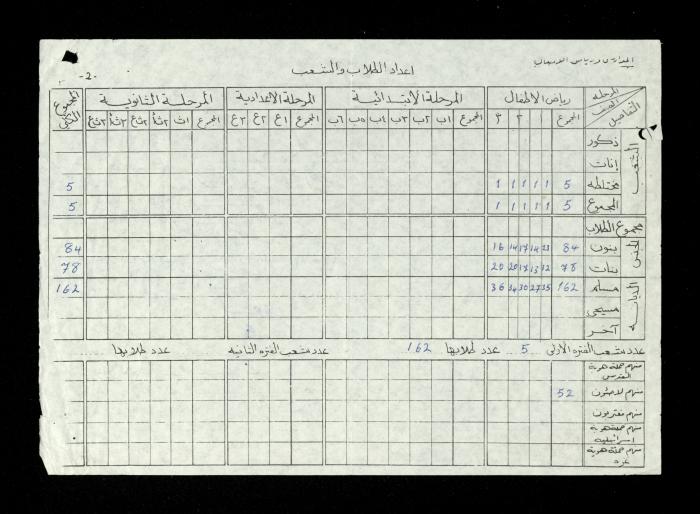 المدارس ورياض الاطفال
-2-
اعداد الطلاب والشعب
المرحلة الصف التفاصيل رياض الاطفال المرحلة الابتدائية المرحلة الاعدادية المرحلة الثانوية المجموع الكلي
المجموع ١ ٢ ٣ المجموع ١ب ٢ب ٣ب ٤ب ٥ب ٦ب المجموع ١ع ٢ع ٣ع المجموع ١ث
الشعب
ذكور
إناث
مختلطه 5 1 1 1 1 1 5
المجموع 5 1 1 1 1 1 5
مجموع الطلاب
الجنس
بنون 84 23 14 17 14 16 84
بنات 78 12 13 13 20 20 78
الديانه
مسلم 162 35 27 30 34 36 162
مسيحي
آخر
عدد شعب الفتره الأولى 5 عدد طلابها 162 عدد شعب الفتره الثانيه عدد طلابها
منهم حملة هوية القدس
منهم لاجئون 52
منهم مغتربون
منهم حملة هوية اسرائيليه
منهم حملة هوية غزه